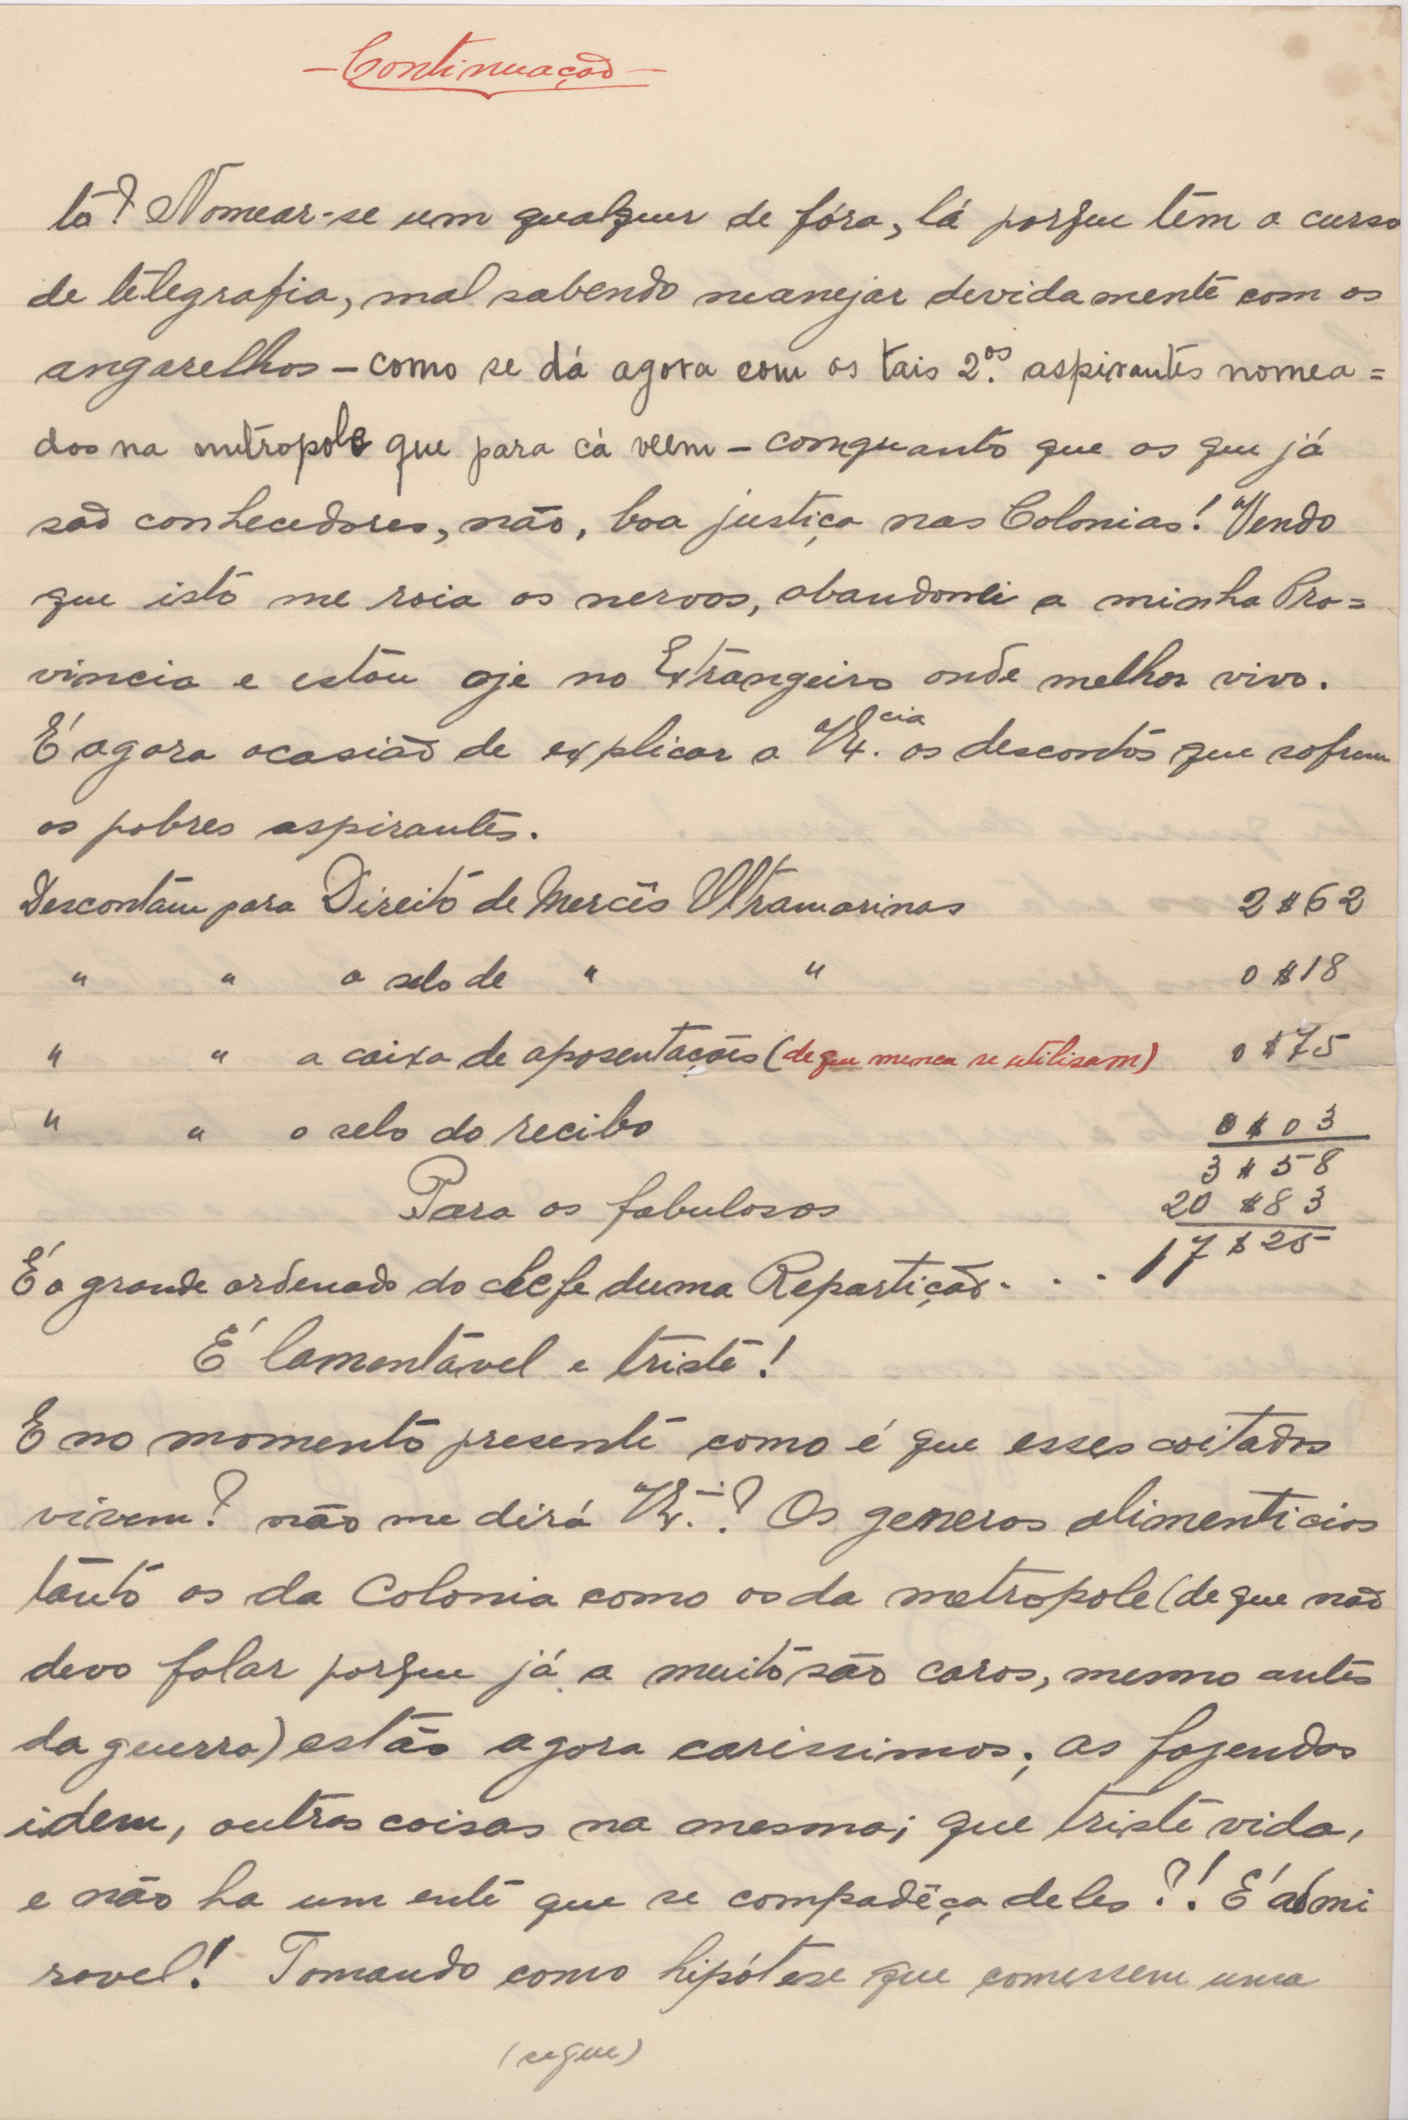 - Continuação -
to? Nomear-se um qualquer de fóra, lá porque têm o curso
de telegrafia, mal sabendo manejar devidamente com os
angarelhos - como se dá agora com os tais 2.os aspirantes nomea=
dos na metropole que para cá veem - comquanto que os que já
são conhecedores, não, boa justiça nas Colonias! Vendo
que isto me roia os nervos, abandonei a minha Pro=
vincia e estou oje no Extrangeiro onde melhor vivo.
É agora ocasião de explicar a V. Ex.cia os descontos que sofrem
os pobres aspirantes.
Descontam para Direito de Mercês Ultramarinas 2$62
" " o selo de " " 0$18
" " a caixa de aposentações (de que nunca se utilisam) 0$75
" " o selo do recibo 0$03
3$58
Para os fabulosos 20$83
É o grande ordenado do chefe duma Repartição. . . . 17$25
É lamentável e triste!
E no momento presente como é que esses coitados
vivem? não me dirá V. Ex.? Os generos alimenticios
tanto os da Colonia como os da metropole (de que não
devo falar porque já a muito são caros, mesmo antes
da guerra) estão agora carissimos; as fazendas
idem, outras coisas na mesma; que triste vida,
e não ha um ente que se compadêça deles?! É admi
ravel! Tomando como hipótese que comessem uma
(segue)